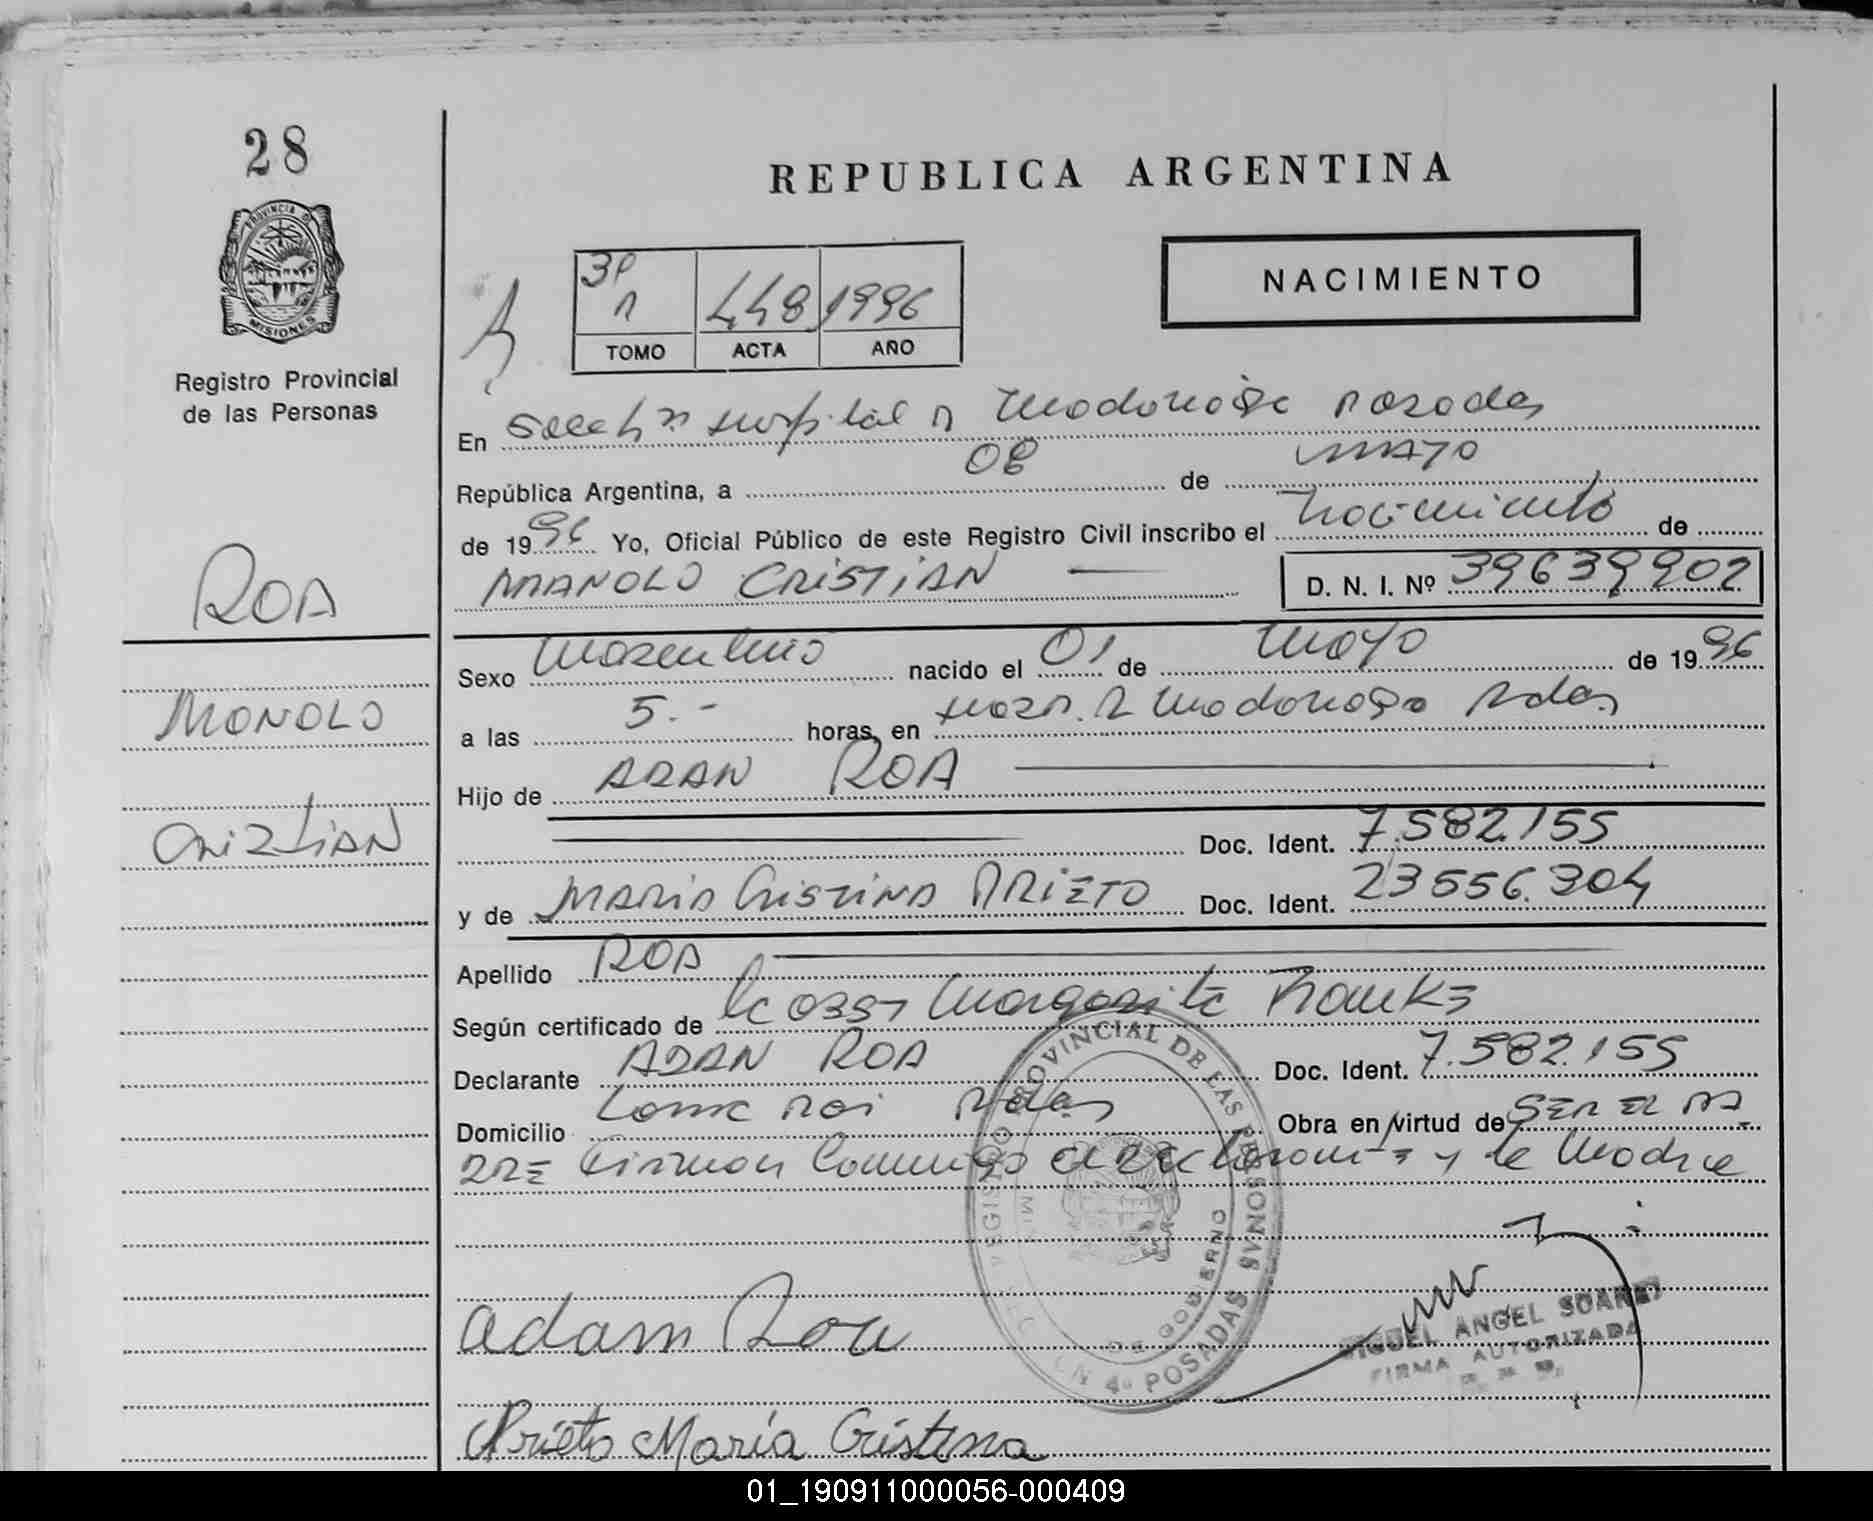 28
PROVINCIA D
MISIONES
Registro Provincial
de las Personas
ROA
MANOLO
CRISTIAN
REPUBLICA ARGENTINA
NACIMIENTO
3P
1 448 1996
TOMO ACTA AÑO
En Hospital Posadas
República Argentina, a 08 de MAYO
de 1996 Yo, Oficial Público de este Registro Civil inscribo el Nacimiento de
MANOLO CRISTIAN D. N. I. Nº 39639902
Sexo Masculino nacido el 01 de Mayo de 1996
a las 5.- horas, en Hosp. R Madariaga Pdas
Hijo de ADAN ROA
Doc. Ident. 7.582.155
y de MARIA CRISTINA PRIETO Doc. Ident. 23556.304
Apellido ROA
Según certificado de Margarita
Declarante ADAN ROA Doc. Ident. 7.582.155
Domicilio Pdas Obra en virtud de SER EL PA
DRE Firman Conmigo el y la Madre
REGISTRO PROVINCIAL DE LAS PERSONAS
DE GOBIERNO
4º POSADAS
Adam Roa
MIGUEL ANGEL SUAREZ
FIRMA AUTORIZADA
Prieto María Cristina
01_190911000056-000409